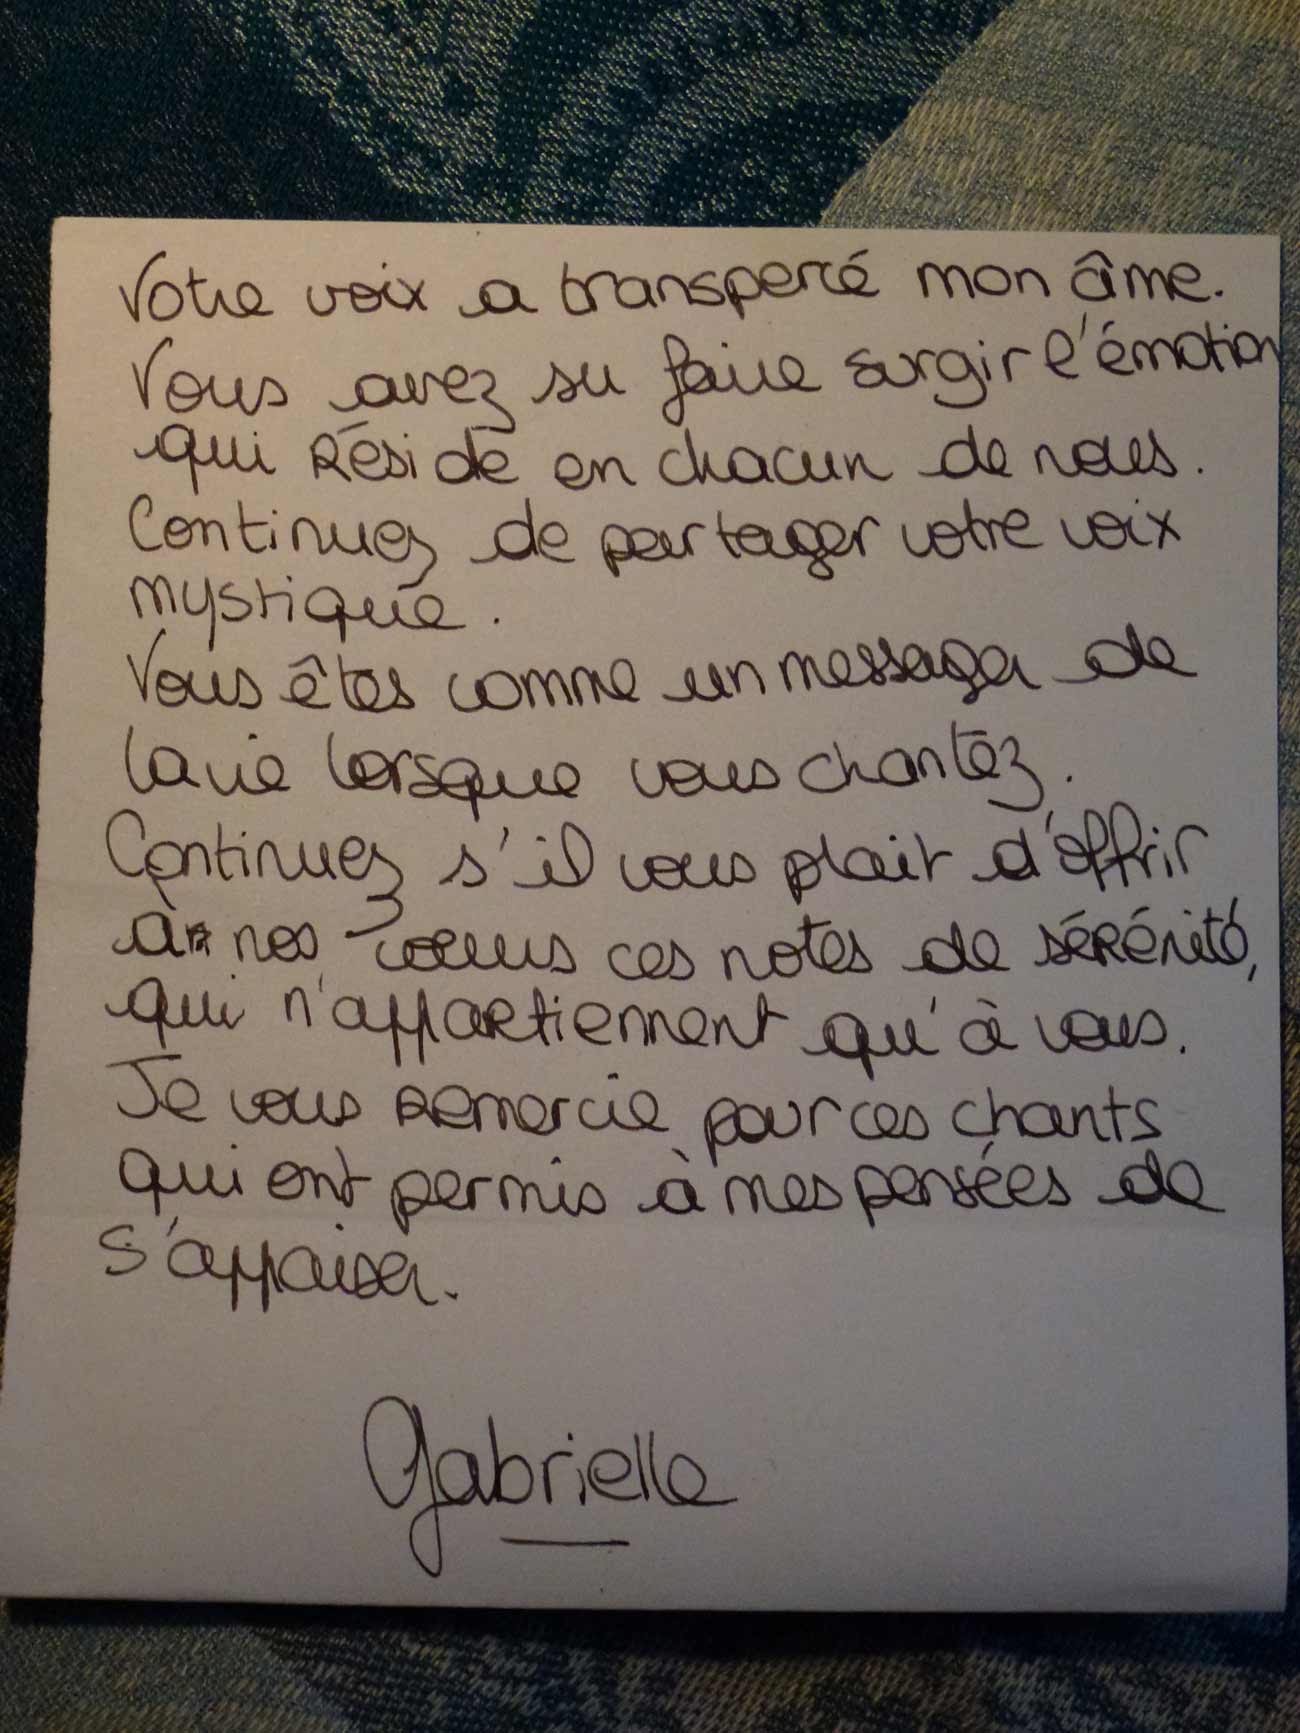 Votre voix a transpercé mon âme.
Vous avez su faire surgir l'émotion
qui réside en chacun de nous.
Continuez de partager votre voix
mystique.
Vous êtes comme un messager de
la vie lorsque vous chantez.
Continuez s'il vous plait d'offrir
à nos coeurs ces notes de sérénité,
qui n'appartiennent qu'à vous.
Je vous remercie pour ces chants
qui ont permis à mes pensées de
s'appaiser.
Gabrielle